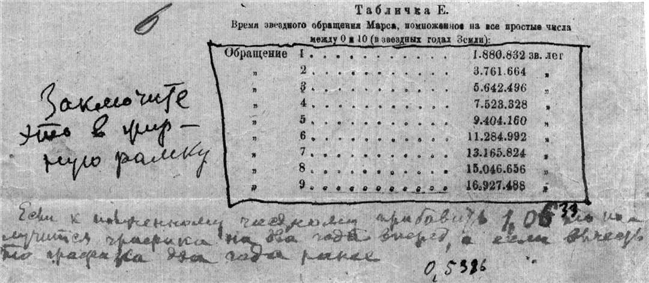 6
Табличка Е.
Время звездного обращения Марса, помноженное на все простые числа
между 0 и 10 (в звездных годах Земли):
Обращение 1 . . . . . . . . 1.880.832 зв. лет
„ 2 . . . . . . . . 3.761.664 „
„ 3 . . . . . . . . 5.642.496 „
„ 4 . . . . . . . . 7.523.328 „
„ 5 . . . . . . . . 9.404.160 „
„ 6 . . . . . . . . 11.284.992 „
„ 7 . . . . . . . . 13.165.824 „
„ 8 . . . . . . . . 15.046.656 „
„ 9 . . . . . . . . 16.927.488 „
Заключите
это в жир–
ную рамку
Если к частному прибавить 1,0639 то по
лучится графика на два года вперед, а если вычесть
то графика два года ранее
0,5386